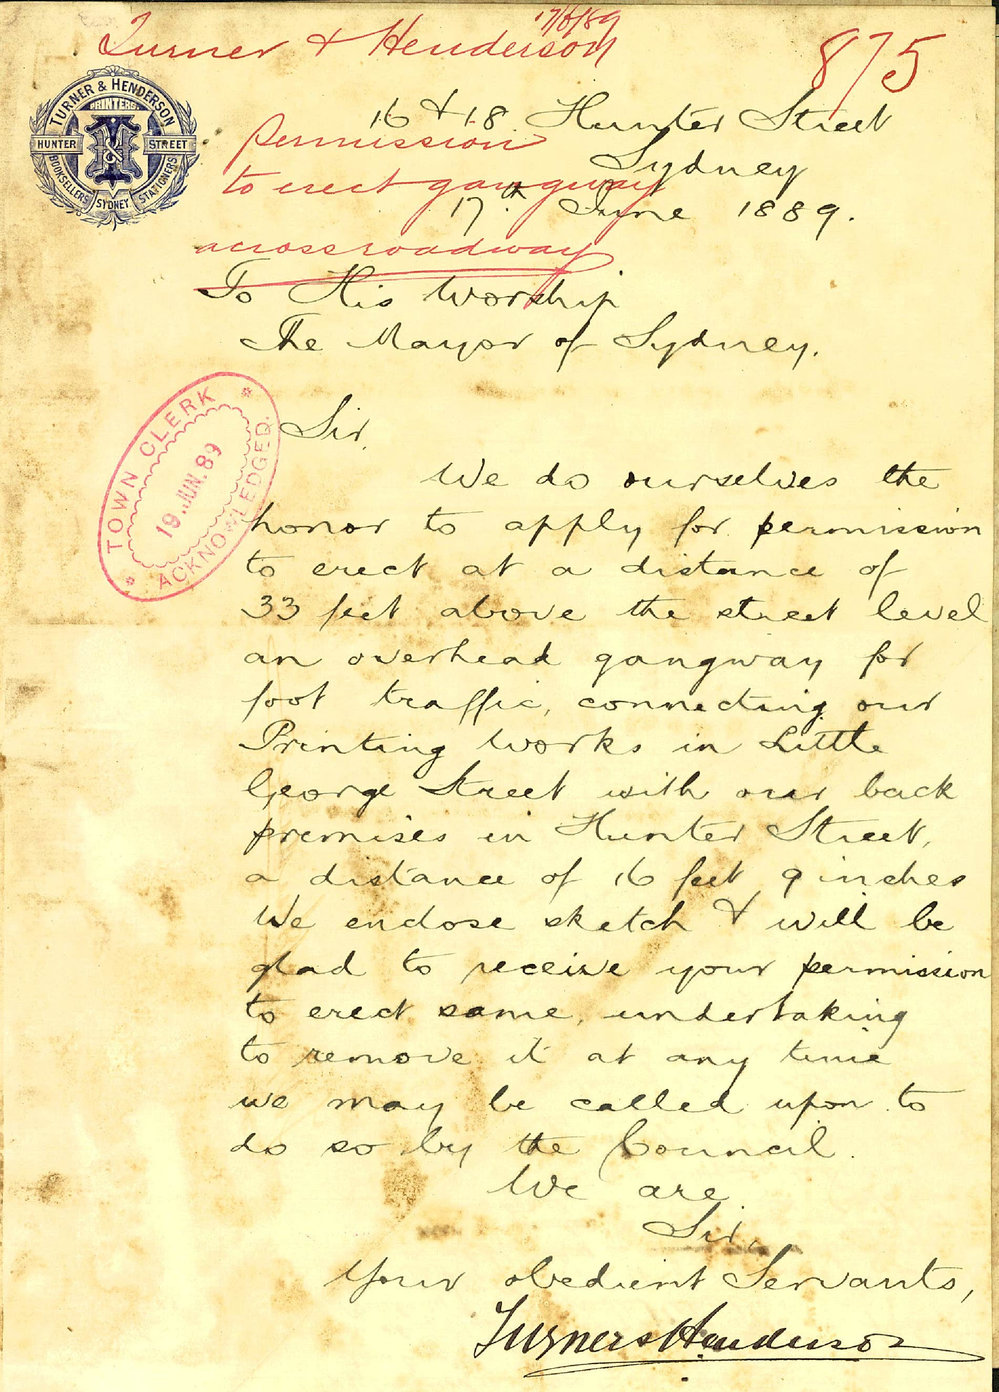 17/6/89
Turner & Henderson
875
TURNER & HENDERSON
PRINTERS
HUNTER STREET
BOOKSELLERS SYDNEY STATIONERS
16 & 18 Hunter Street
permission
Sydney
to erect gangway
17th June 1889.
across roadway
To His Worship
The Mayor of Sydney.
TOWN CLERK
19 JUN. 89
ACKNOWLEDGED.
Sir,
We do ourselves the
honor to apply for permission
to erect at a distance of
33 feet above the street level
an overhead gangway for
foot traffic, connecting our
Printing Works in Little
George Street with our back
premises in Hunter Street,
a distance of 16 feet 9 inches
We enclose sketch & will be
glad to receive your permission
to erect same, undertaking
to remove it at any time
we may be called upon to
do so by the Council.
We are
Sir,
Your obedient Servants,
Turner & Henderson